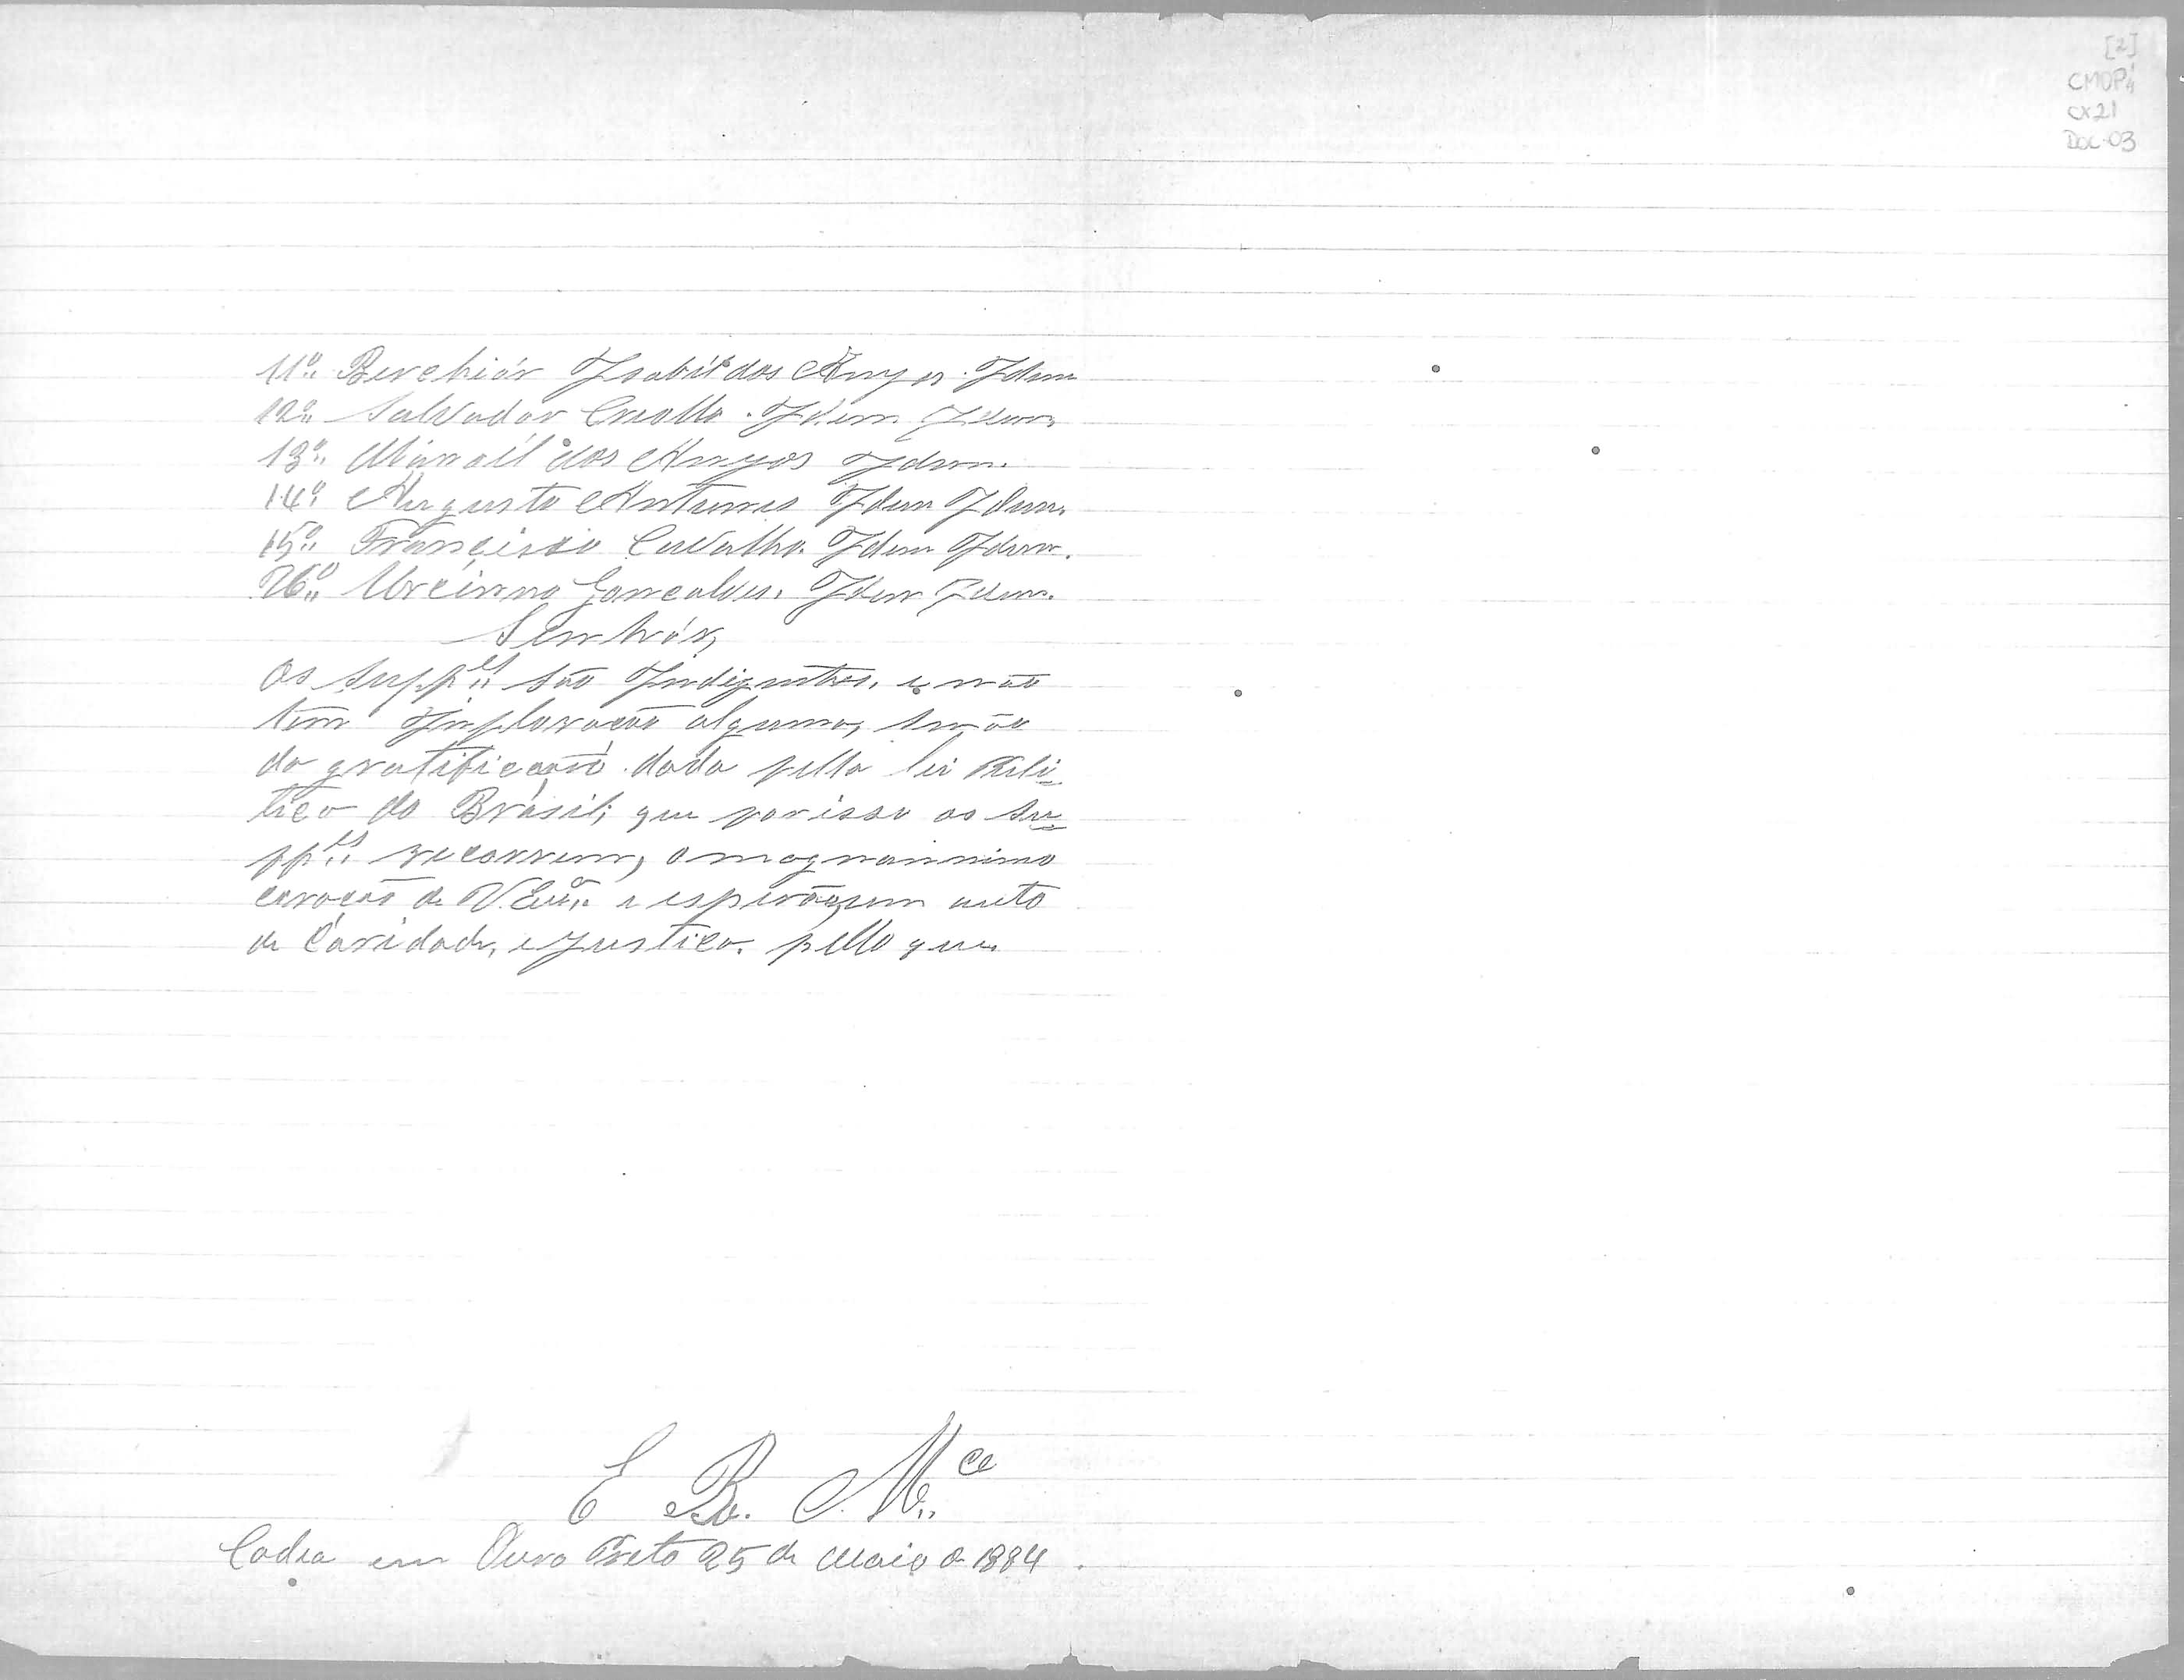 [2]
CMOP
CX21
DOC-03
11º Berchiór Izabél dos Anjos. Idem
12º Salvador Criollo. Idem. Idem.
13º Manoél dos Anjos Idem.
14º Augusto Antunes Idem Idem.
15º Francisco Carvalho. Idem Idem.
16º Gonçalves. Idem Idem.
Senhór,
Os Supp.es são Indigentes, e não
tem alguma, senão
da gratificação dada pella lei Poli-
tica do Brasil; que por isso os Su-
pp.es recorrem, o magnannimo
coração de V. Exª. e esperão um auto
de Caridade, e justica. pello que
E R. M.ce
Cadea em Ouro Preto 25 de Maio de 1884.